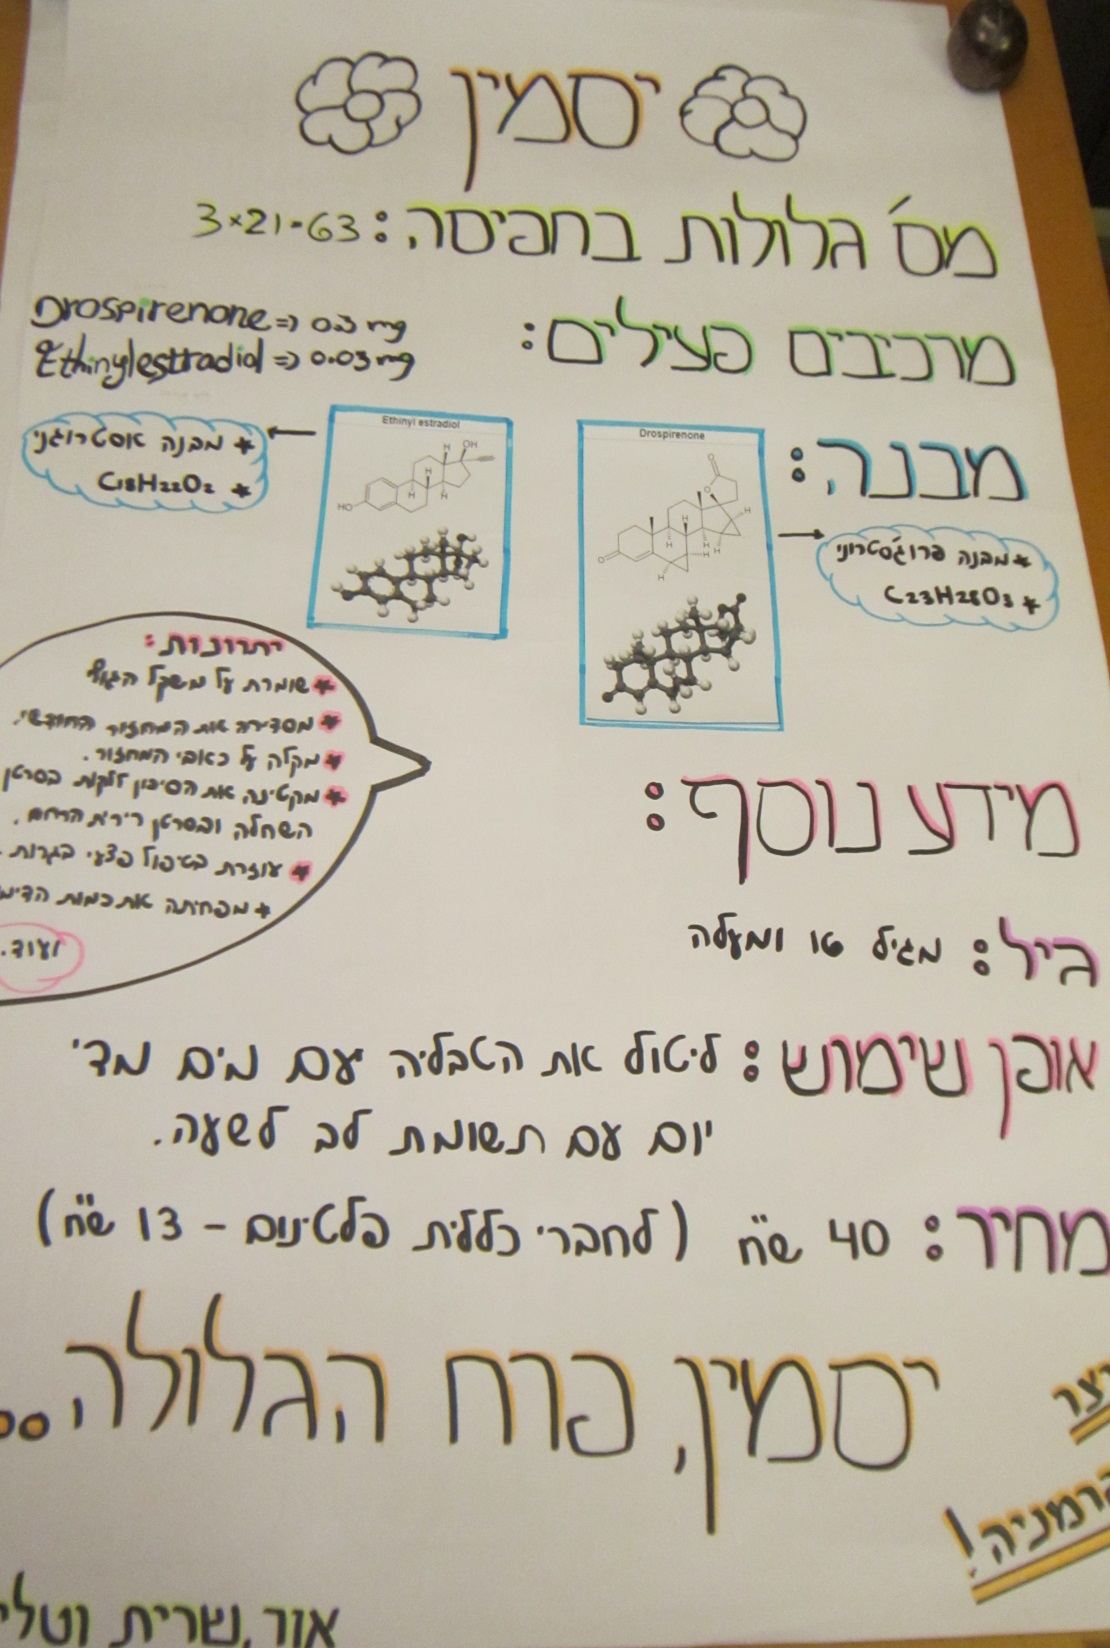 יסמין
מס' גלולות בחפיסה: 3×21=63
מרכיבים פעילים:
Drospirenone => 0.3 mg
Ethinylesttradiol => 0.03 mg
מבנה:
Drospirenone
* מבנה פרוג'סטרוני
* C23H28O3
Ethinyl estradiol
HO
OH
* מבנה אסטרוגני
* C18H22O2
יתרונות:
* שומרת על משקל הגוף
* מסדירה את המחזור החודשי.
* מקלה על כאבי המחזור.
* מקטינה את הסיכון ללקות בסרטן
השחלה ובסרטן רירית הרחם.
* עוזרת בטיפול פצעי בגרות.
* מפחיתה את כמות
ועוד.
מידע נוסף:
גיל: מגיל טו ומעלה
אופן שימוש: ליטול את הטבליה עם מים מד'
יום עם תשומת לב לשעה.
מחיר: 40 ש"ח (לחברי כללית פלטינום - 13 ש"ח)
יסמין, פרח הגלולה..
אור, שרית וטלי